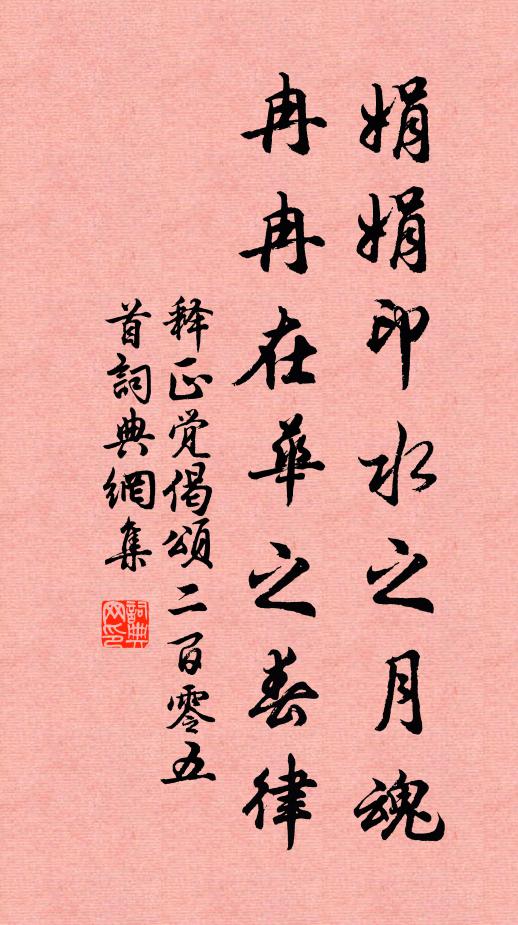 娟娟印水之月魂
冉冉在華之春律
释正觉偈頌二百零五
首詞典網集
詞典
网印